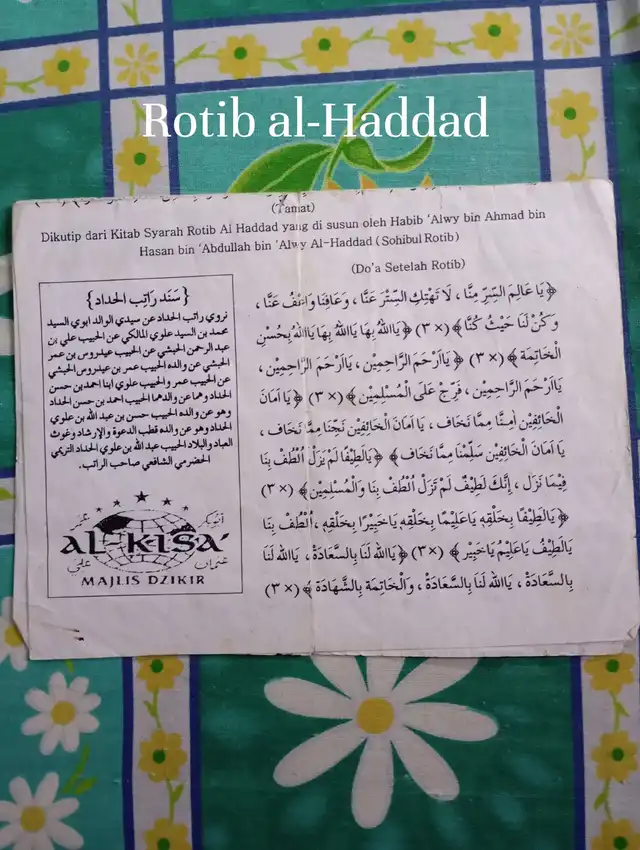 Rotib al-Haddad
(Tamat)
Dikutip dari Kitab Syarah Rotib Al Haddad yang di susun oleh Habib 'Alwy bin Ahmad bin
Hasan bin 'Abdullah bin 'Alwy Al-Haddad (Sohibul Rotib)
(Do'a Setelah Rotib)
﴿يَا عَالِمَ السِّرِّ مِنَّا ، لَا تَهْتِكِ السِّتْرَ عَنَّا ، وَعَافِنَا وَاعْفُ عَنَّا ،
وَكُنْ لَنَا حَيْثُ كُنَّا﴾ (× ٣) ﴿يَااَللهُ بِهَا يَااَللهُ بِهَا يَااَللهُ بِحُسْنِ
الْخَاتِمَةِ﴾ (× ٣) ﴿يَاأَرْحَمَ الرَّاحِمِيْنَ ، يَاأَرْحَمَ الرَّاحِمِيْنَ ،
يَاأَرْحَمَ الرَّاحِمِيْنَ ، فَرِّجْ عَلَى الْمُسْلِمِيْنَ﴾ (× ٣) ﴿يَا اَمَانَ
الْخَائِفِيْنَ اٰمِنَّا مِمَّا نَخَاف ، يَا اَمَانَ الْخَائِفِيْنَ نَجِّنَا مِمَّا نَخَاف ،
يَا اَمَانَ الْخَائِفِيْنَ سَلِّمْنَا مِمَّا نَخَاف﴾ ﴿يَالَطِيْفًا لَمْ يَزَلْ اُلْطُفْ بِنَا
فِيْمَا نَزَل ، إِنَّكَ لَطِيْفٌ لَمْ تَزَلْ اُلْطُفْ بِنَا وَالْمُسْلِمِيْنَ﴾ (× ٣)
﴿يَالَطِيْفًا بِخَلْقِهِ يَاعَلِيْمًا بِخَلْقِهِ يَاخَبِيْرًا بِخَلْقِهِ ، اُلْطُفْ بِنَا
يَالَطِيْفُ يَاعَلِيْمُ يَاخَبِيْر﴾ (× ٣) ﴿يَااَللهُ لَنَا بِالسَّعَادَةْ ، يَااَللهُ لَنَا
بِالسَّعَادَةْ ، يَااَللهُ لَنَا بِالسَّعَادَةْ ، وَالْخَاتِمَةِ بِالشَّهَادَةْ﴾ (× ٣)
{سَنَد رَاتِب الحَدَاد}
نروي راتب الحداد عن سيدي الوالد ابوي السيد
محمد بن السيد علوي المالكي عن الحبيب علي بن
عبد الرحمن الحبشي عن الحبيب عيدروس بن عمر
الحبشي عن والده الحبيب عمر بن عيدروس الحبشي
عن الحبيب عمر والحبيب علوي ابنا احمد بن حسن
الحداد وهما عن والدهما الحبيب احمد بن حسن الحداد
وهو عن والده الحبيب حسن بن عبد الله بن علوي
الحداد وهو عن والده قطب الدعوة والإرشاد وغوث
العباد والبلاد الحبيب عبد الله بن علوي الحداد التريمي
الحضرمي الشافعي صاحب الراتب.
عمر
AL-KISA'
علي عثمان
MAJLIS DZIKIR